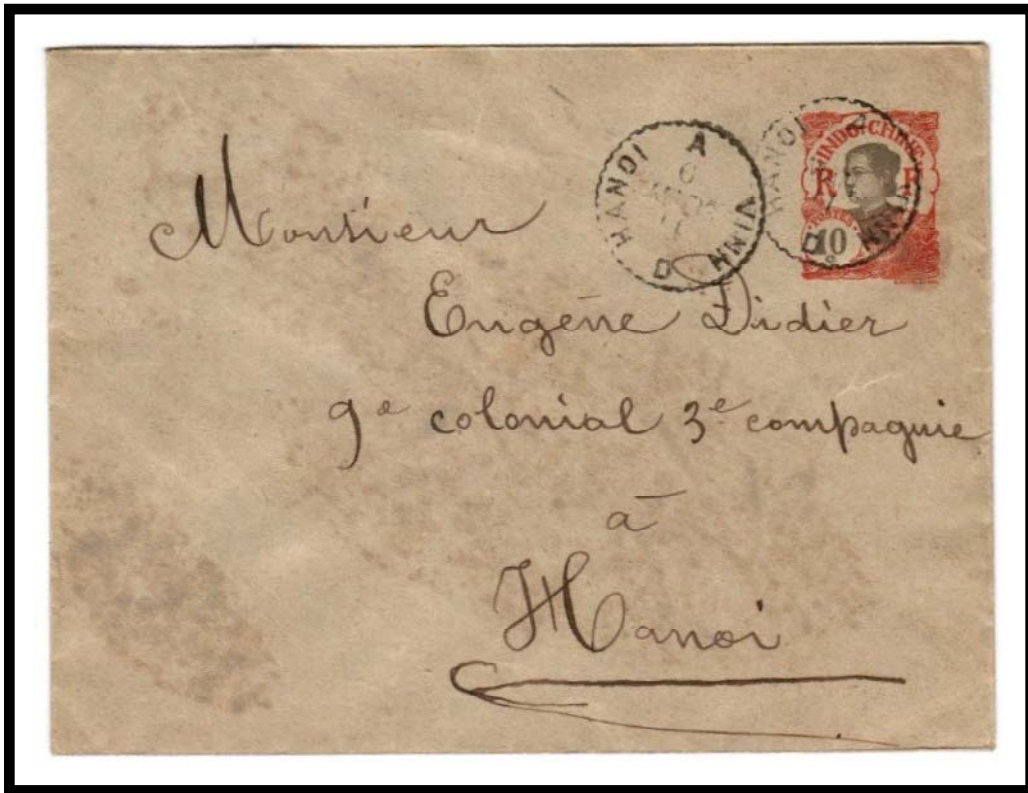 HANOI A VINH D
HANOI A VINH D
INDO-CHINE
R F
POSTES
10
Monsieur
Eugène Didier
9e colonial 3e compagnie
à
Hanoi